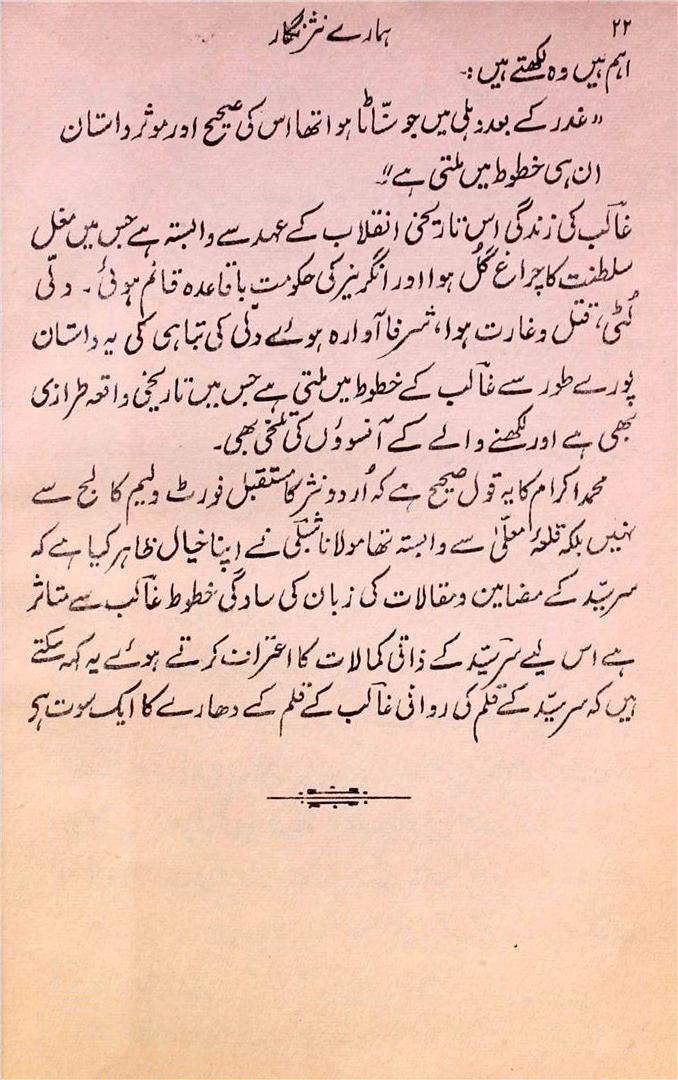 ۲۲
ہمارے نثر نگار
اہم ہیں وہ لکھتے ہیں :۔
"غدر کے بعد دہلی میں جو سنّاٹا ہوا تھا اس کی صحیح اور موثر داستان
ان ہی خطوط میں ملتی ہے"۔
غالب کی زندگی اس تاریخی انقلاب کے عہد سے وابستہ ہے جس میں مغل
سلطنت کا چراغ گُل ہوا اور انگریز کی حکومت باقاعدہ قائم ہوئی ۔ دلّی
لُٹی، قتل و غارت ہوا، شرفا آوارہ ہوئے دلّی کی تباہی کی یہ داستان
پورے طور سے غالب کے خطوط میں ملتی ہے جس میں تاریخی واقعہ طرازی
بھی ہے اور لکھنے والے کے آنسوؤں کی تلخی بھی۔
محمد اکرام کا یہ قول صحیح ہے کہ اُردو نثر کا مستقبل فورٹ ولیم کالج سے
نہیں بلکہ قلعۂ معلّیٰ سے وابستہ تھا مولانا شبلی نے اپنا خیال ظاہر کیا ہے کہ
سرسیّد کے مضامین و مقالات کی زبان کی سادگی خطوط غالب سے متاثر
ہے اس لیے سرسیّد کے ذاتی کمالات کا اعتراف کرتے ہوئے یہ کہہ سکتے
ہیں کہ سرسیّد کے قلم کی روانی غالب کے قلم کے دھارے کا ایک سوت ہی